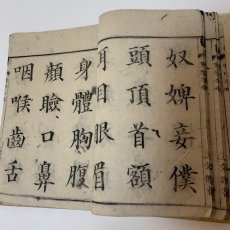 奴婢妾僕
頭頂首額
耳目眼眉
身體胸腹
顏臉口鼻
咽喉齒舌